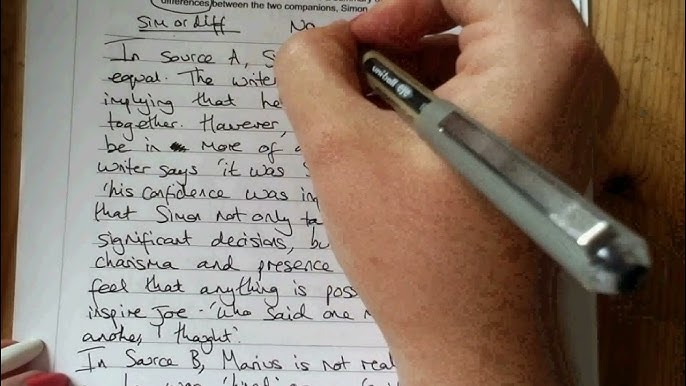 differences between the two companions, Simon
Sim or diff No
In Source A, S
equal. The writer
implying that he
together. However,
be in more of a
writer says 'it was S
'his confidence was im
that Simon not only ta
significant decisions, bu
charisma and presence
feel that anything is poss
inspire Joe - 'who said one
another, I thought'.
In Source B, Marius is not real
uniball eye